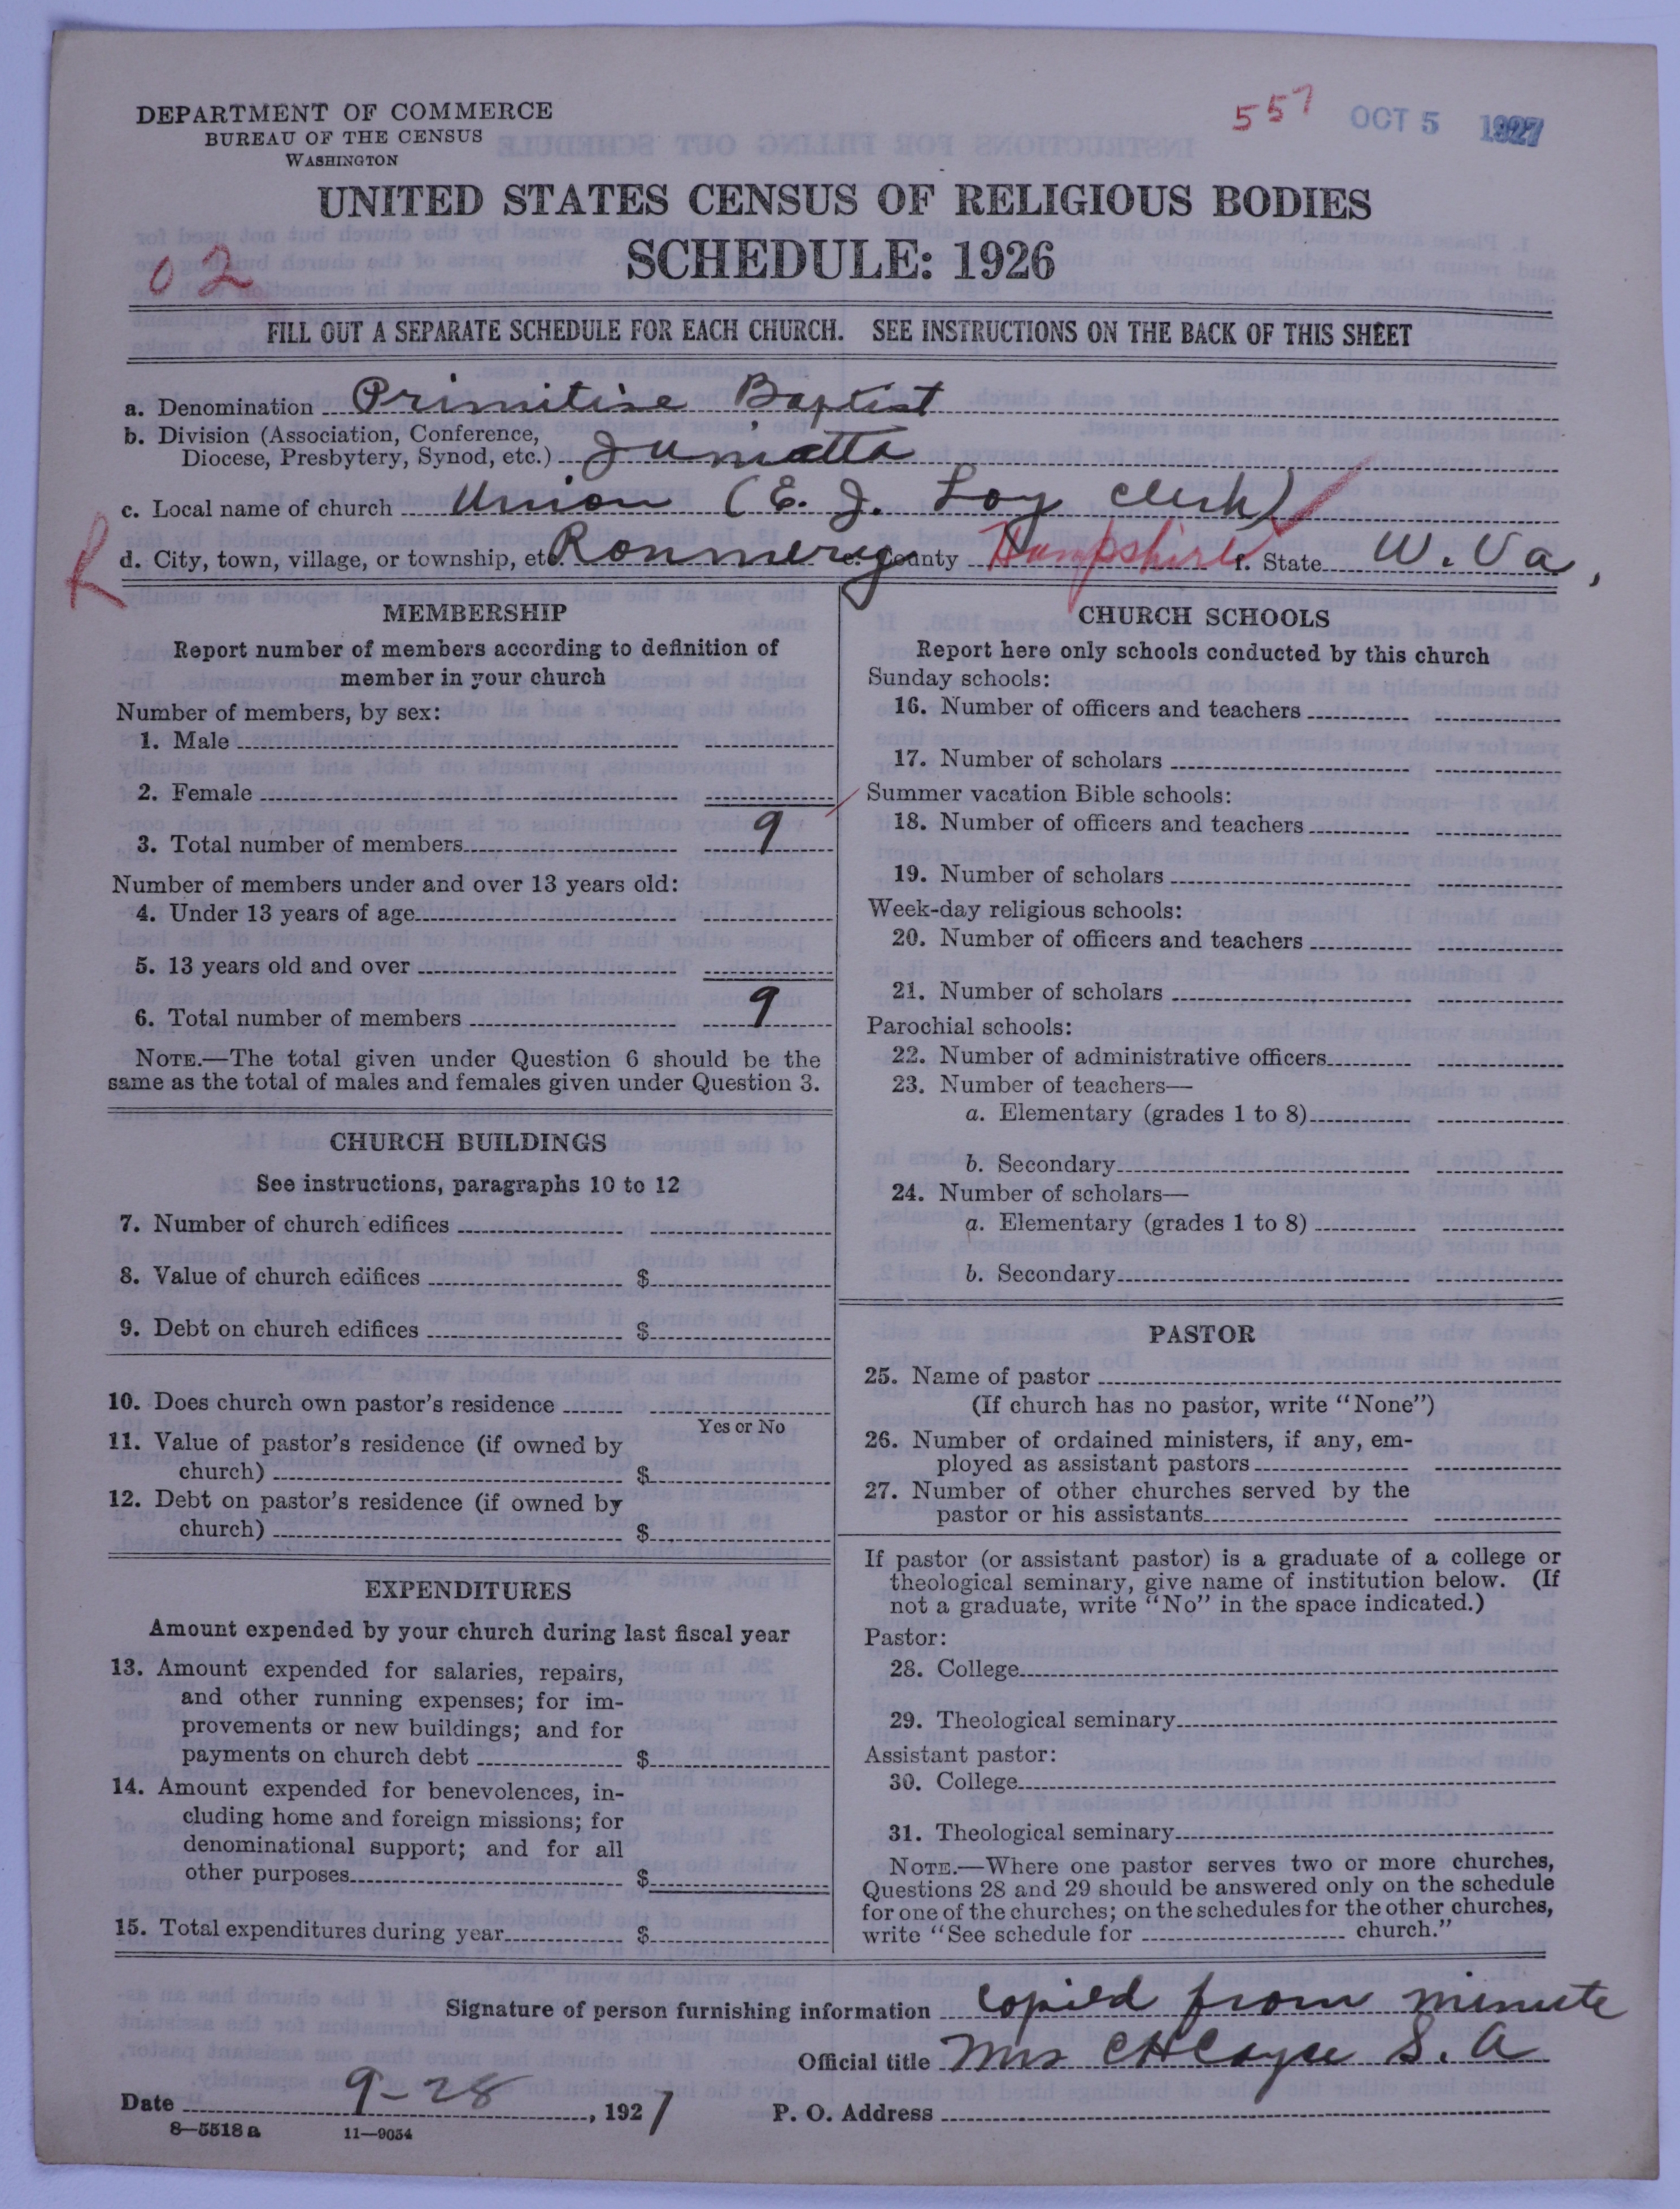 DEPARTMENT OF COMMERCE
BUREAU OF THE CENSUS
WASHINGTON
557 OCT 5 1927
UNITED STATES CENSUS OF RELIGIOUS BODIES
SCHEDULE: 1926
02
FILL OUT A SEPARATE SCHEDULE FOR EACH CHURCH. SEE INSTRUCTIONS ON THE BACK OF THIS SHEET
a. Denomination Primitive Baptist
b. Division (Association, Conference,
Diocese, Presbytery, Synod, etc.) Juniatta
c. Local name of church Union (E. J. Loy clerk)
R d. City, town, village, or township, etc. e. County Hampshire f. State W. Va,
MEMBERSHIP
Report number of members according to definition of
member in your church
Number of members, by sex:
1. Male
2. Female
3. Total number of members 9
Number of members under and over 13 years old:
4. Under 13 years of age
5. 13 years old and over
6. Total number of members 9
NOTE.—The total given under Question 6 should be the
same as the total of males and females given under Question 3.
CHURCH BUILDINGS
See instructions, paragraphs 10 to 12
7. Number of church edifices
8. Value of church edifices $
9. Debt on church edifices $
10. Does church own pastor's residence
Yes or No
11. Value of pastor's residence (if owned by
church) $
12. Debt on pastor's residence (if owned by
church) $
EXPENDITURES
Amount expended by your church during last fiscal year
13. Amount expended for salaries, repairs,
and other running expenses; for im-
provements or new buildings; and for
payments on church debt $
14. Amount expended for benevolences, in-
cluding home and foreign missions; for
denominational support; and for all
other purposes $
15. Total expenditures during year $
CHURCH SCHOOLS
Report here only schools conducted by this church
Sunday schools:
16. Number of officers and teachers
17. Number of scholars
Summer vacation Bible schools:
18. Number of officers and teachers
19. Number of scholars
Week-day religious schools:
20. Number of officers and teachers
21. Number of scholars
Parochial schools:
22. Number of administrative officers
23. Number of teachers—
a. Elementary (grades 1 to 8)
b. Secondary
24. Number of scholars—
a. Elementary (grades 1 to 8)
b. Secondary
PASTOR
25. Name of pastor
(If church has no pastor, write "None")
26. Number of ordained ministers, if any, em-
ployed as assistant pastors
27. Number of other churches served by the
pastor or his assistants
If pastor (or assistant pastor) is a graduate of a college or
theological seminary, give name of institution below. (If
not a graduate, write "No" in the space indicated.)
Pastor:
28. College
29. Theological seminary
Assistant pastor:
30. College
31. Theological seminary
NOTE.—Where one pastor serves two or more churches,
Questions 28 and 29 should be answered only on the schedule
for one of the churches; on the schedules for the other churches,
write "See schedule for church."
Signature of person furnishing information copied from minute
Official title Mrs C H Cayce S. A
Date 9-28, 1927 P. O. Address
8—5518 a 11—9054